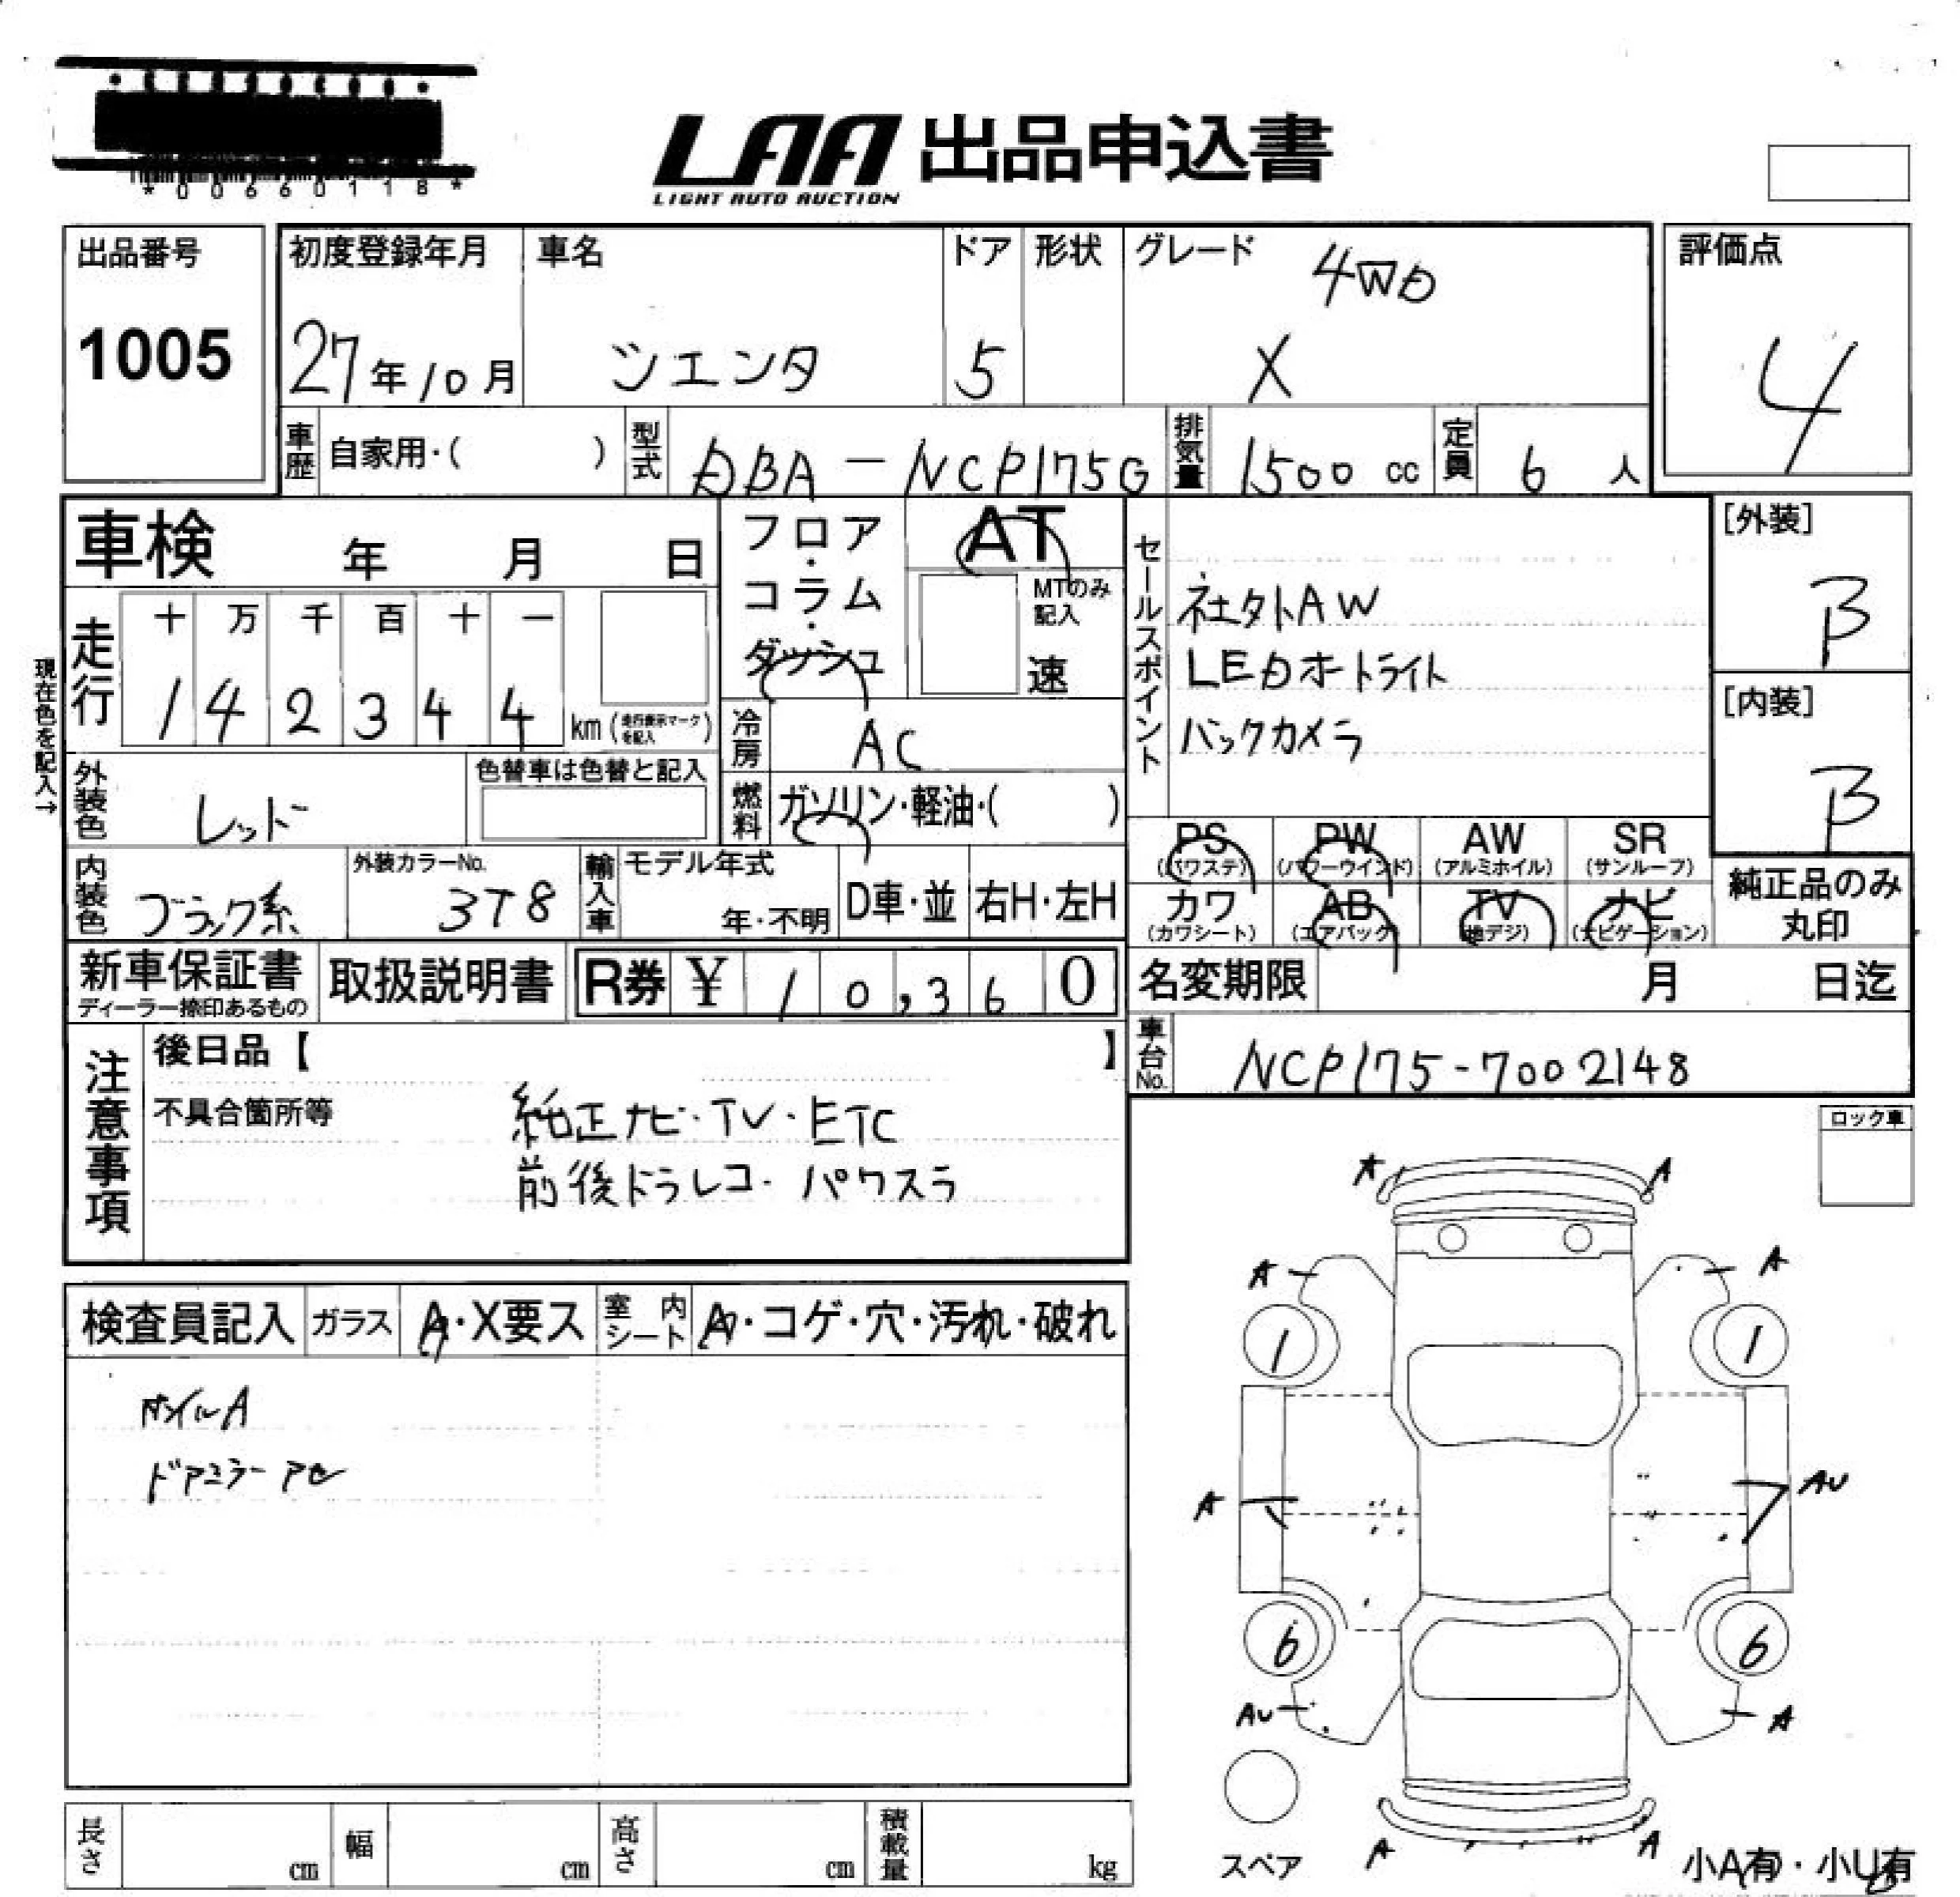 *00660118*
LAA 出品申込書
LIGHT AUTO AUCTION
出品番号
1005
初度登録年月
27年10月
車名
シエンタ
ドア
5
形状
グレード
4WD
X
評価点
4
車歴
自家用・( )
型式
DBA-NCP175G
排気量
1500 cc
定員
6 人
車検 年 月 日
フロア・コラム・ダッシュ
AT
MTのみ記入
速
セールスポイント
社外AW
LEDオートライト
バックカメラ
[外装]
B
[内装]
B
現在色を記入→
走行
十 万 千 百 十 一
1 4 2 3 4 4 km (走行表示マークを記入)
冷房
AC
外装色
レッド
色替車は色替と記入
燃料
ガソリン・軽油・( )
内装色
ブラック系
外装カラーNo.
3T8
輸入車
モデル年式
年・不明
D車・並
右H・左H
PS (パワステ)
PW (パワーウインド)
AW (アルミホイル)
SR (サンルーフ)
カワ (カワシート)
AB (エアバック)
TV (地デジ)
ナビ (ナビゲーション)
純正品のみ丸印
新車保証書
ディーラー捺印あるもの
取扱説明書
R券 ¥ 10,360
名変期限 月 日迄
車台No.
NCP175-7002148
注意事項
後日品【 】
不具合箇所等
純正ナビ・TV・ETC
前後ドラレコ・パワスラ
ロック車
検査員記入
ガラス
A・X要ス
室内シート
A・コゲ・穴・汚れ・破れ
ホイルA
ドアミラー
A
A
A
A
1
1
A
AU
6
6
AU
A
スペア
A
A
小A有・小U有
長さ cm
幅 cm
高さ cm
積載量 kg